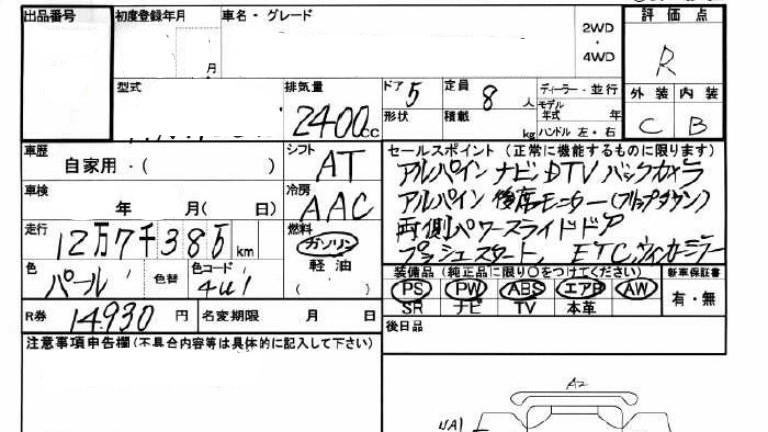 出品番号 初度登録年月 車名・グレード 評価点
月 2WD・4WD R
型式 排気量 2400cc ドア 5 定員 8人 ディーラー・並行 外装 内装
形状 積載 kg モデル年式 年 C B
ハンドル 左・右
車歴 自家用・( ) シフト AT セールスポイント（正常に機能するものに限ります）
アルパイン ナビ DTV バックカメラ
車検 年 月( 日) 冷房 AAC アルパイン 後席モニター(フリップダウン)
走行 12万7千385km 燃料 ガソリン 両側パワースライドドア
軽油 ( ) プッシュスタート, ETC, ウィンカーミラー
色 パール 色替 色コード 4U1 装備品（純正品に限り○をつけてください） 新車保証書
PS PW ABS エアB AW 有・無
SR ナビ TV 本革
R券 14,930円 名変期限 月 日 後日品
注意事項申告欄(不具合内容等は具体的に記入して下さい)
A2